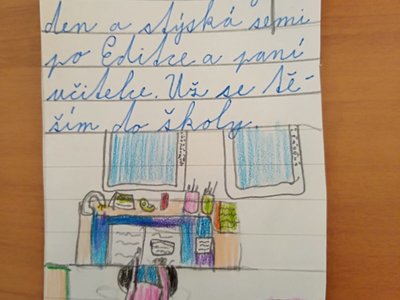 den a stýská semi
po Editce a paní
učitelce. Už se tě-
ším do školy.